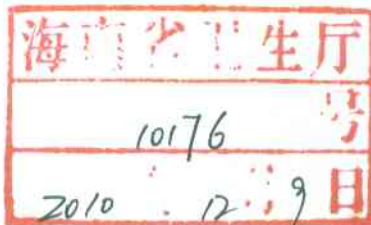 海南省卫生厅
10176 号
2010 12 9 日